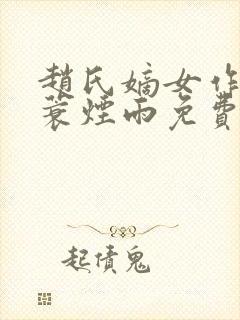 趙氏嫡女作
蓑煙雨免費
起債鬼